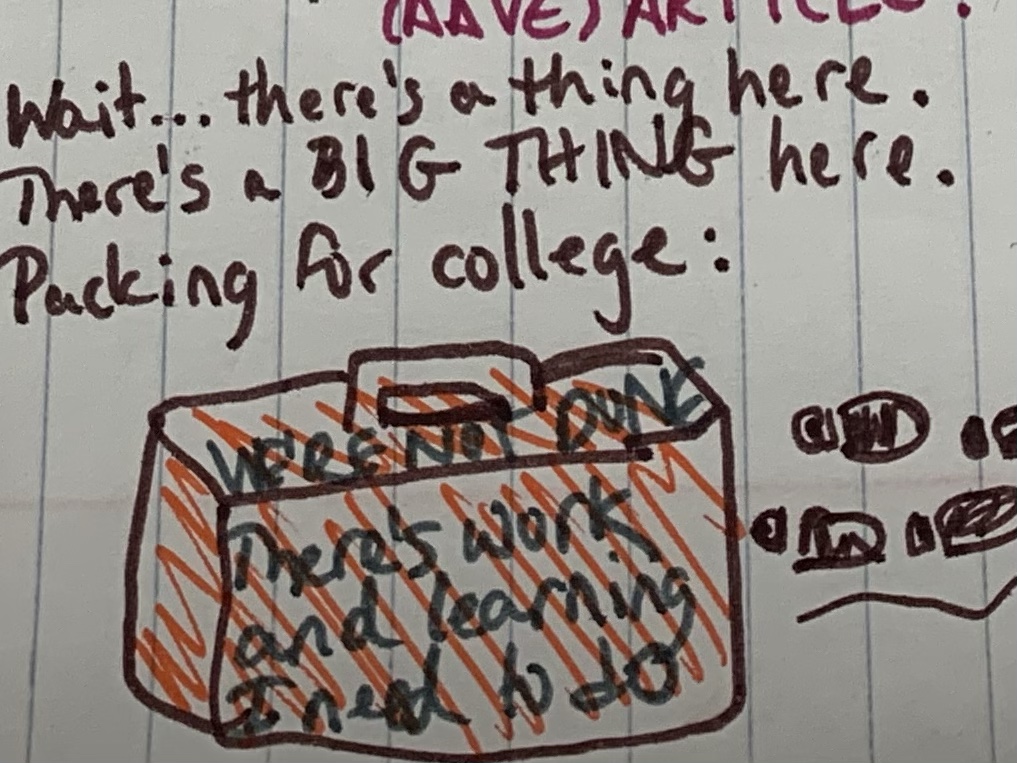 (AAVE) ARTICLE!
Wait... there's a thing here.
There's a BIG THING here.
Packing for college:
WE'RE NOT DONE
There's work
and learning
I need to do